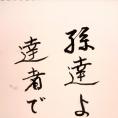 孫達よ
達者で